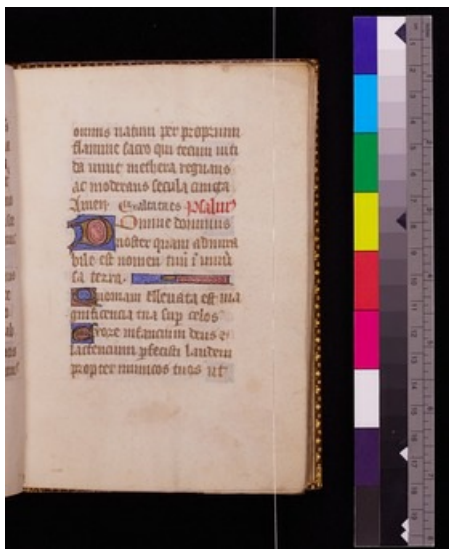 omnis natum per proprium
flamine sacro qui tecum niti
da vivit
ac moderans secula cuncta
Amen Psalm9
Domine dominus
noster quam admira
bile est nomen tuū ī univ̄
sa terra.
Quoniam elevata est ma
gnificencia tua sup celos
Ex ore infancium deus et
lactencium pfecisti laudem
propter inimicos tuos ut